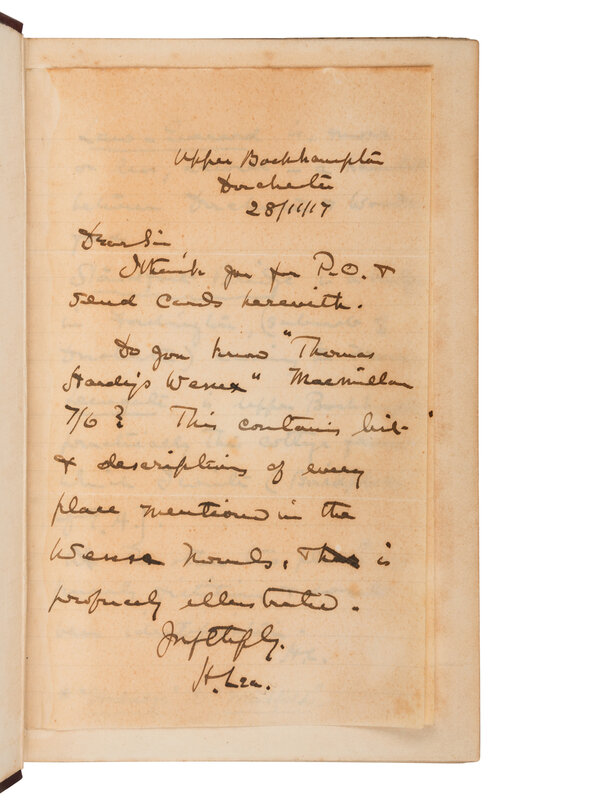 Upper Bockhampton
Dorchester
28/11/17
Dear Sir
I thank you for P.O. &
send cards herewith.
Do you know "Thomas
Hardy's Wessex" Macmillan
7/6? This contains hist-
& descriptions of every
place mentioned in the
Wessex Novels, & is
profusely illustrated.
Yrs ftfly.
H. Lea.